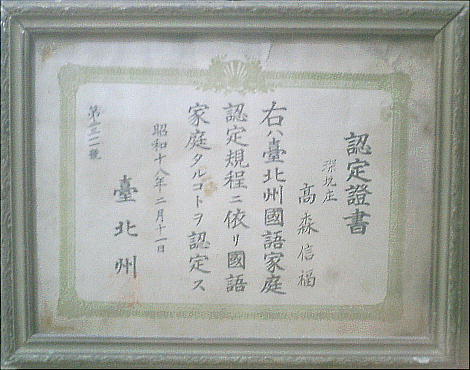 認定證書
深坑庄
高森信福
右ハ臺北州國語家庭
認定規程ニ依リ國語
家庭タルコトヲ認定ス
昭和十八年二月十一日
臺北州
第一三一號